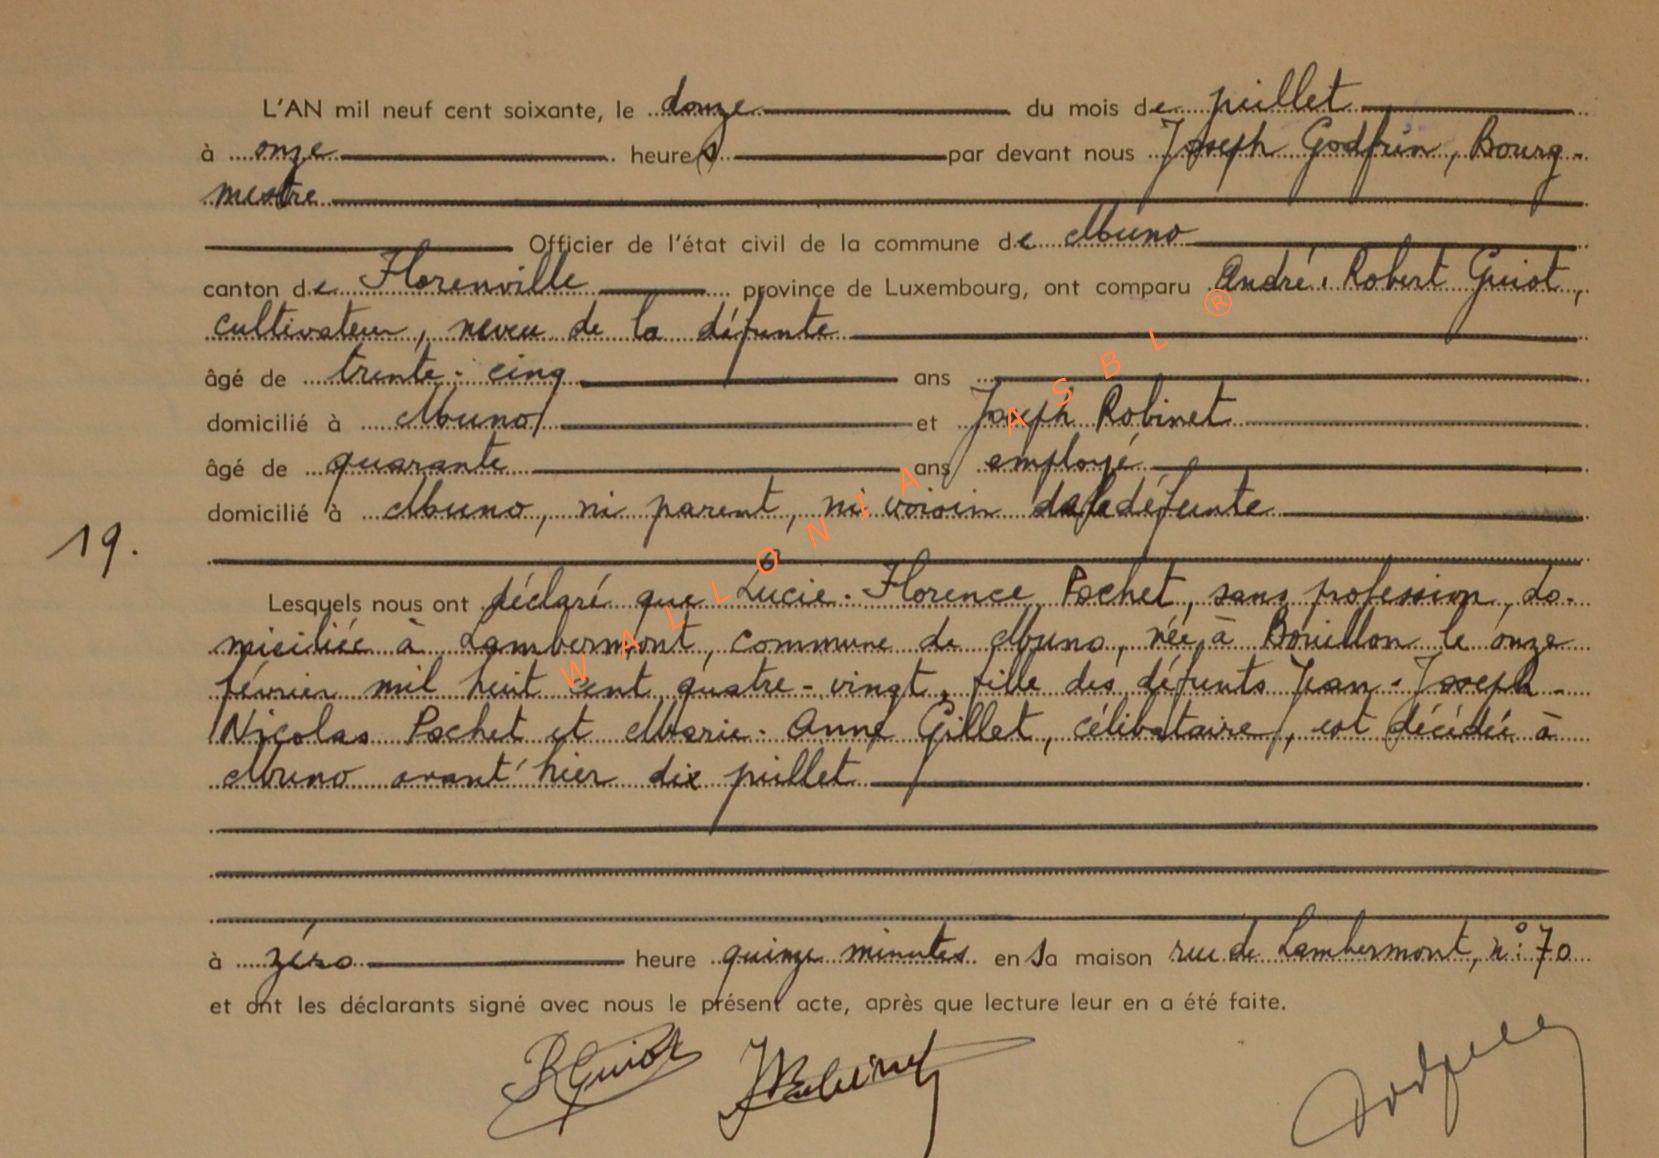 L'AN mil neuf cent soixante, le douze du mois de juillet
à onze heures par devant nous Joseph Godfrin, Bourg-
mestre
Officier de l'état civil de la commune de Muno
canton de Florenville province de Luxembourg, ont comparu André-Robert Guiot,
cultivateur, neveu de la défunte
âgé de trente-cinq ans
domicilié à Muno et Joseph Robinet
âgé de quarante ans employé
domicilié à Muno, ni parent, ni voisin de la défunte
19.
Lesquels nous ont déclaré que Lucie-Florence Pochet, sans profession, do-
miciliée à Lambermont, commune de Muno, née à Bouillon le onze
février mil huit cent quatre-vingt, fille des défunts Jean-Joseph-
Nicolas Pochet et Marie-Anne Gillet, célibataire, est décédée à
Muno avant'hier dix juillet
à zéro heure quinze minutes en sa maison rue de Lambermont, n°: 70
et ont les déclarants signé avec nous le présent acte, après que lecture leur en a été faite.
R Guiot JRobinet Godfrin
WALLONIA ASBL ®